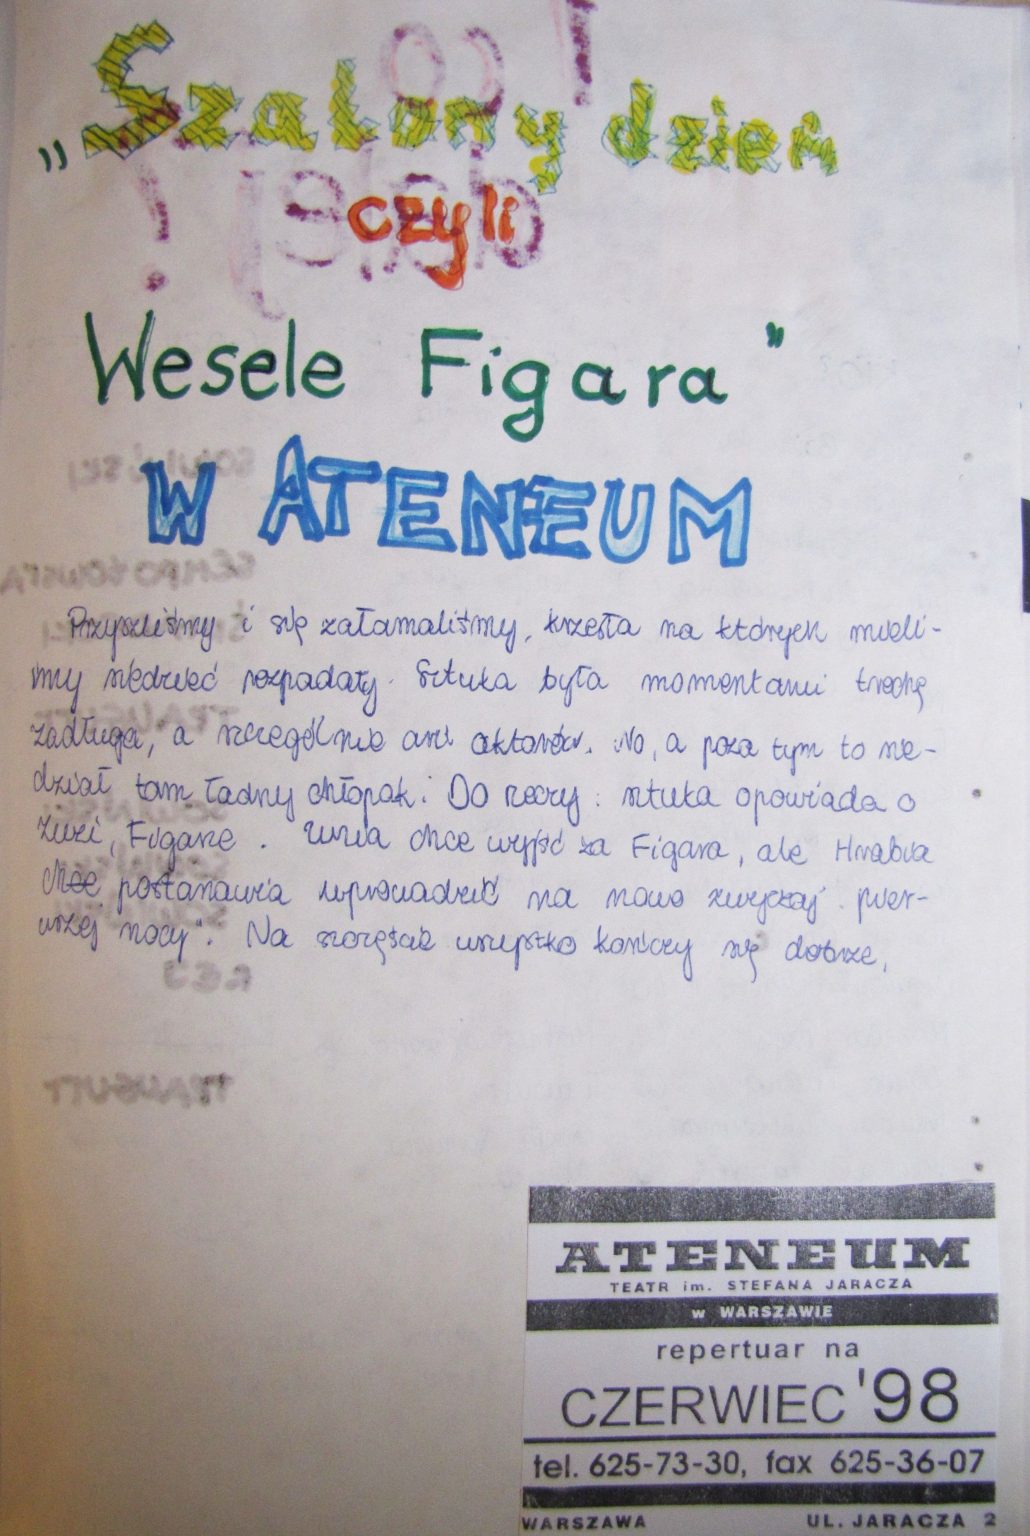 „Szalony dzień
czyli
Wesele Figara”
W ATENEUM
Przyszliśmy i się załamaliśmy, krzesła na których mieli-
śmy siedzieć rozpadały. Sztuka była momentami trochę
zadługa, a szczególnie aktorów. No, a poza tym to sie-
dział tam ładny chłopak. Do rzeczy: sztuka opowiada o
Zuzi, Figarze. Zuzia chce wyjść za Figara, ale Hrabia
chce postanawia wprowadzić na nowo zwyczaj „pier-
wszej nocy". Na szczęście wszystko kończy się dobrze.
ATENEUM
TEATR im. STEFANA JARACZA
w WARSZAWIE
repertuar na
CZERWIEC '98
tel. 625-73-30, fax 625-36-07
WARSZAWA UL. JARACZA 2